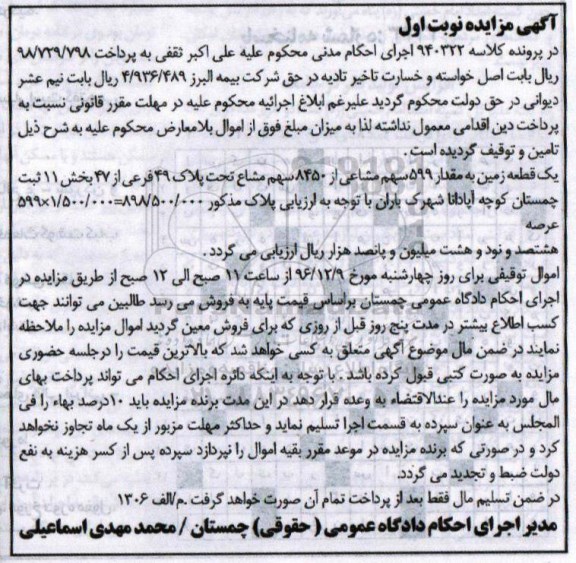 آگهی مزایده نوبت اول
در پرونده کلاسه ۹۴۰۳۲۲ اجرای احکام مدنی محکوم علیه علی اکبر ثقفی به پرداخت ۹۸/۷۲۹/۷۹۸
ریال بابت اصل خواسته و خسارت تاخیر تادیه در حق شرکت بیمه البرز ۴/۹۳۶/۴۸۹ ریال بابت نیم عشر
دیوانی در حق دولت محکوم گردید علیرغم ابلاغ اجرائیه محکوم علیه در مهلت مقرر قانونی نسبت به
پرداخت دین اقدامی معمول نداشته لذا به میزان مبلغ فوق از اموال بلامعارض محکوم علیه به شرح ذیل
تامین و توقیف گردیده است .
یک قطعه زمین به مقدار ۵۹۹ سهم مشاعی از ۸۴۵۰ سهم مشاع تحت پلاک ۴۹ فرعی از ۴۷ بخش ۱۱ ثبت
چمستان کوچه آبادانا شهرک باران با توجه به ارزیابی پلاک مذکور ۸۹۸/۵۰۰/۰۰۰=۱/۵۰۰/۰۰۰×۵۹۹
عرصه
هشتصد و نود و هشت میلیون و پانصد هزار ریال ارزیابی می گردد .
اموال توقیفی برای روز چهارشنبه مورخ ۹۶/۱۲/۹ از ساعت ۱۱ صبح الی ۱۲ صبح از طریق مزایده در
اجرای احکام دادگاه عمومی چمستان براساس قیمت پایه به فروش می رسد طالبین می توانند جهت
کسب اطلاع بیشتر در مدت پنج روز قبل از روزی که برای فروش معین گردید اموال مزایده را ملاحظه
نمایند در ضمن مال موضوع آگهی متعلق به کسی خواهد شد که بالاترین قیمت را درجلسه حضوری
مزایده به صورت کتبی قبول کرده باشد . با توجه به اینکه دائره اجرای احکام می تواند پرداخت بهای
مال مورد مزایده را عندالاقتضاء به وعده قرار دهد در این مدت برنده مزایده باید ۱۰درصد بهاء را فی
المجلس به عنوان سپرده به قسمت اجرا تسلیم نماید و حداکثر مهلت مزبور از یک ماه تجاوز نخواهد
کرد و در صورتی که برنده مزایده در موعد مقرر بقیه اموال را نپردازد سپرده پس از کسر هزینه به نفع
دولت ضبط و تجدید می گردد.
در ضمن تسلیم مال فقط بعد از پرداخت تمام آن صورت خواهد گرفت .م/الف ۱۳۰۶
مدیر اجرای احکام دادگاه عمومی ( حقوقی ) چمستان / محمد مهدی اسماعیلی